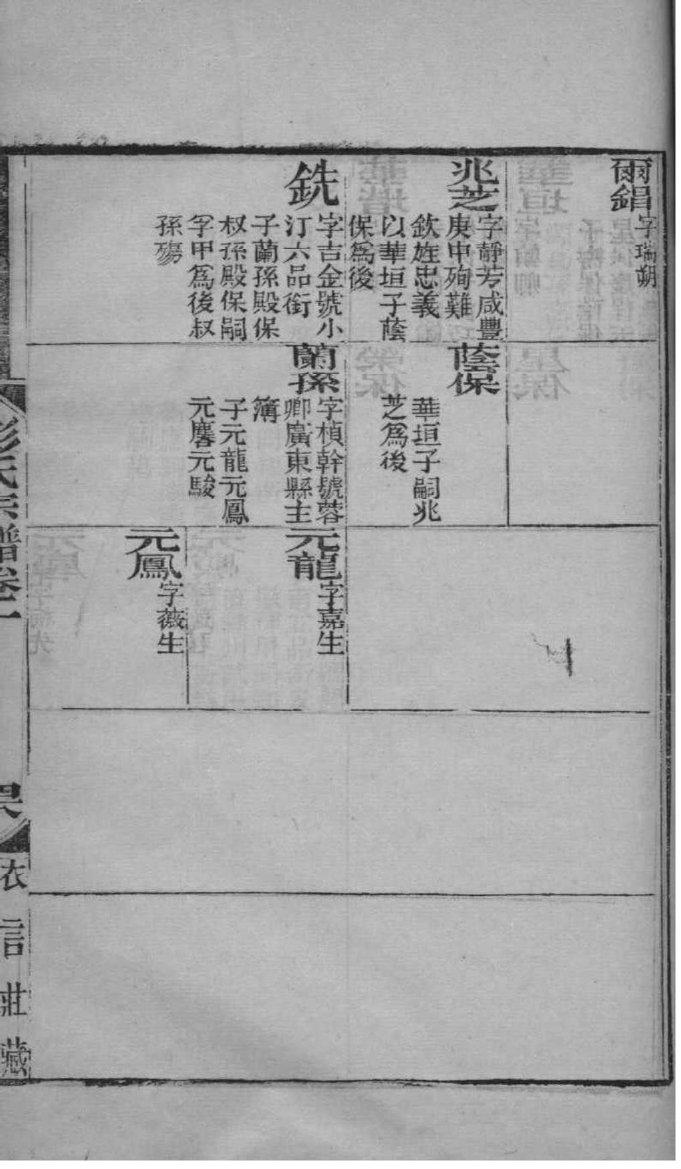 爾錩
字瑞朔
兆芝
字靜芳咸豐
庚申殉難
欽旌忠義
以華垣子蔭
保爲後
銑
字吉金號小
汀六品銜
子蘭孫殿保
叔孫殿保嗣
孚甲爲後叔
孫殤
蔭保
華垣子嗣兆
芝爲後
蘭孫
字楨幹號蓉
卿廣東縣主
簿
子元龍元鳳
元麐元駿
元龍
字嘉生
元鳳
字薇生
彭氏宗譜卷二
衣言莊藏